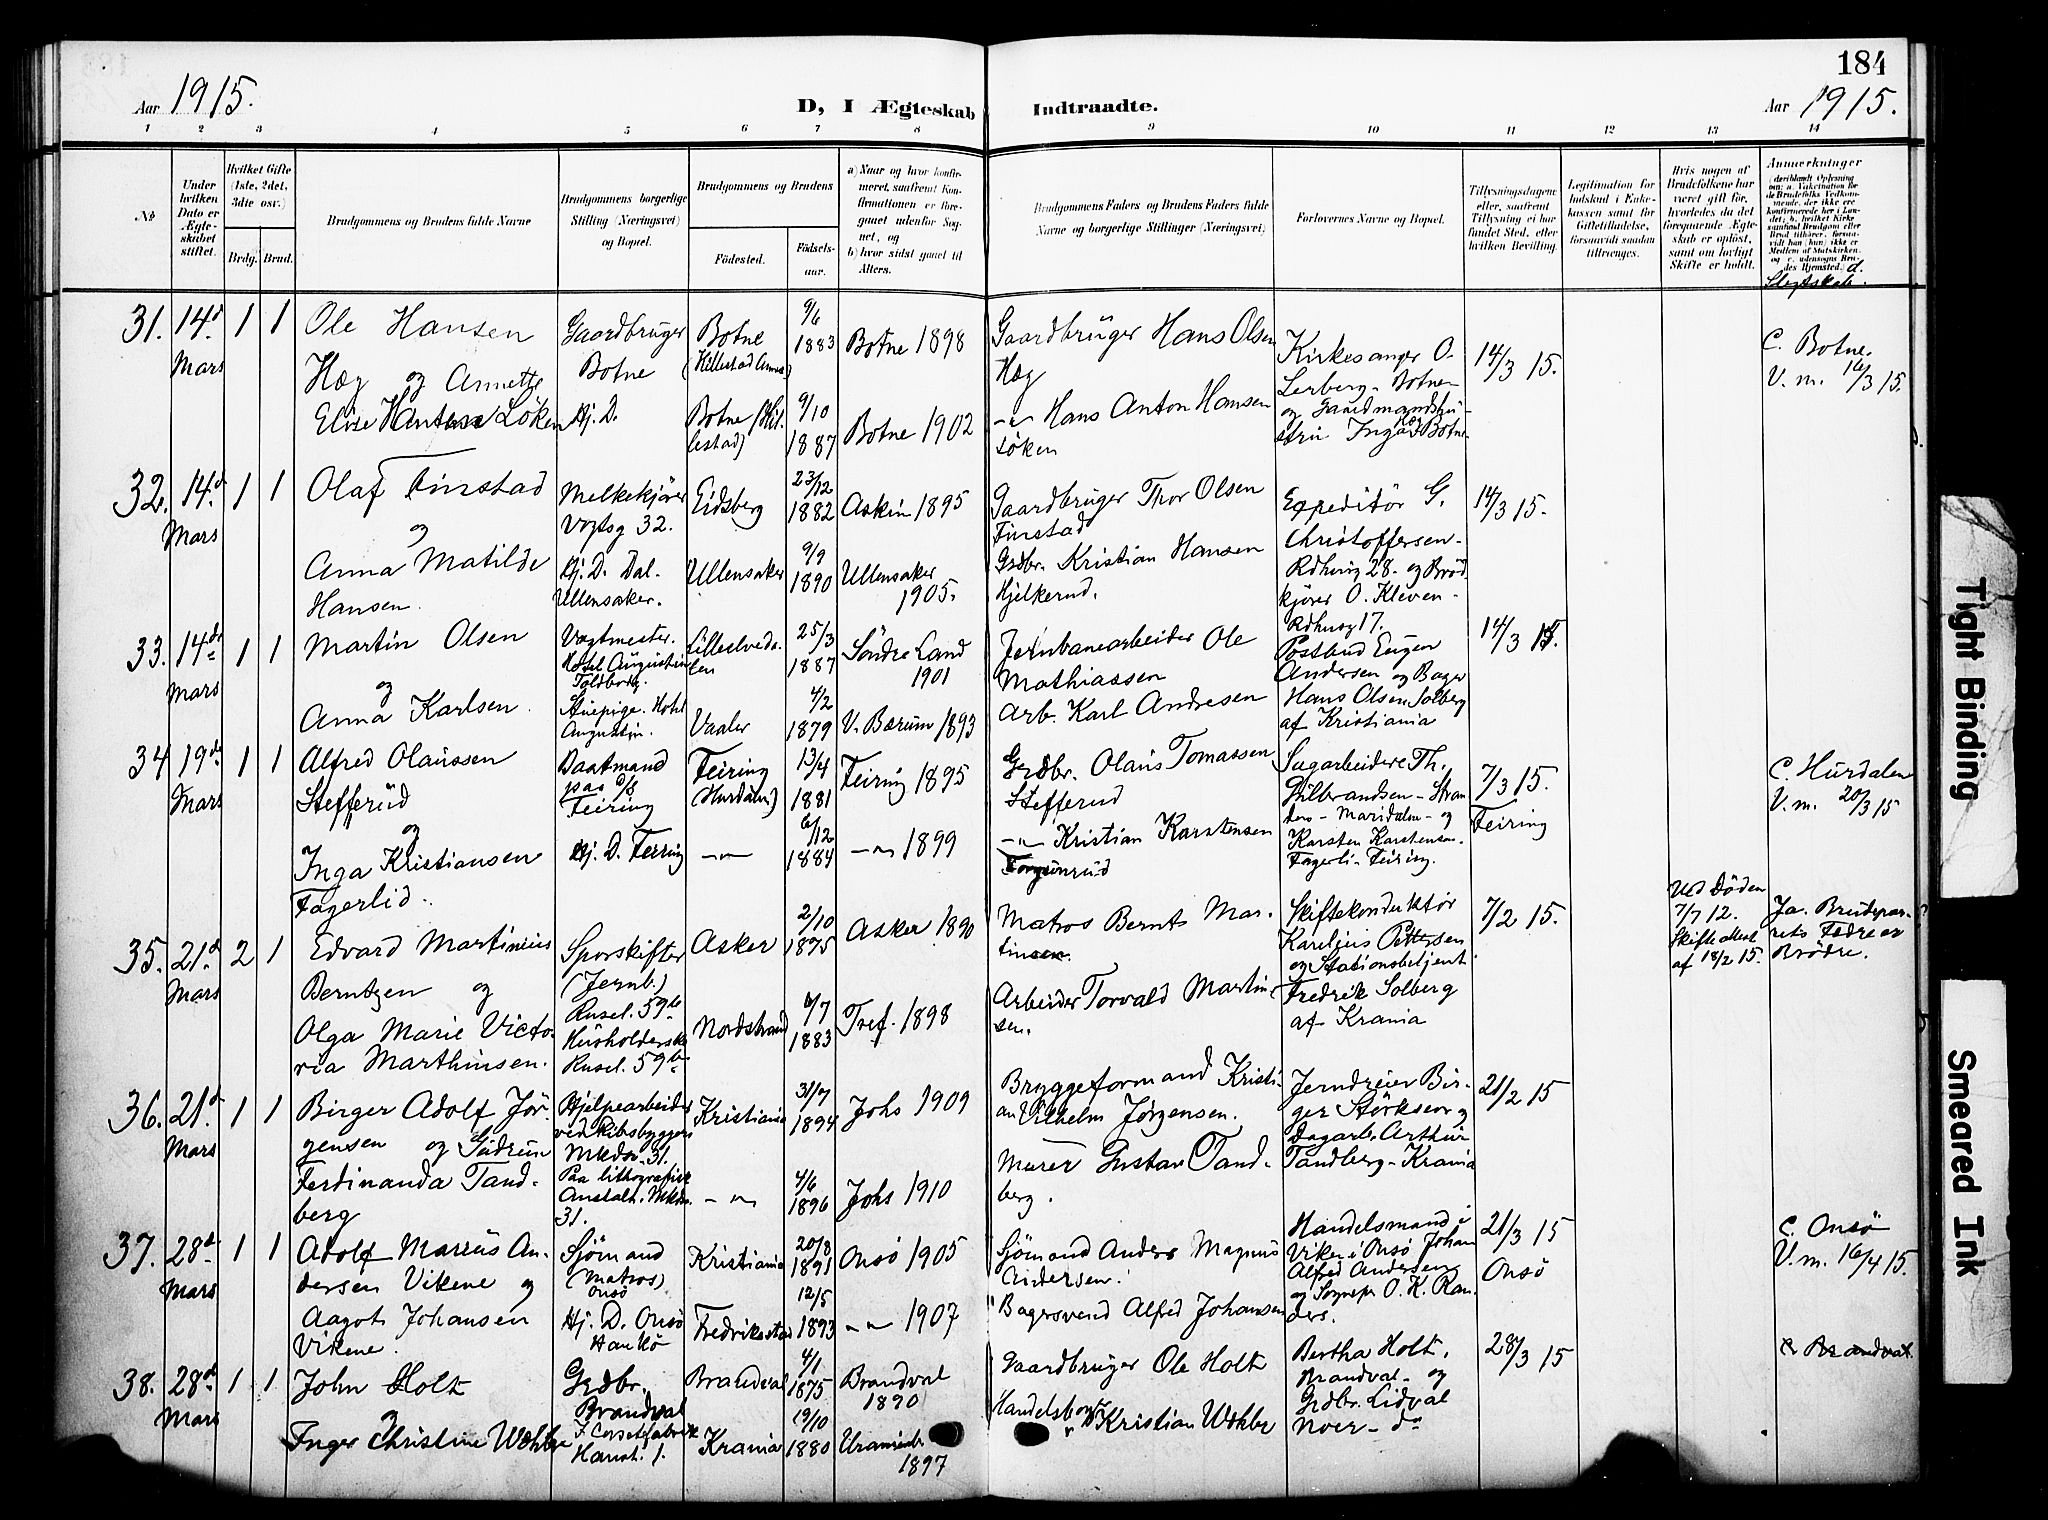 184
Aar 1915.
D, I Ægteskab Indtraadte.
Aar 1915.
1 2 3 4 5 6 7 8 9 10 11 12 13 14
No
Under hvilken Dato er Ægteskabet stiftet.
Hvilket Gifte (1ste, 2det, 3dte osv.)
Brdg. Brud.
Brudgommens og Brudens fulde Navne
Brudgommens borgerlige Stilling (Næringsvei) og Bopæl.
Brudgommens og Brudens
Fødested.
Fødselsaar.
a) Naar og hvor konfirmeret, saafremt Konfirmationen er foregaaet udenfor Sognet, og
b) hvor sidst gaaet til Alters.
Brudgommens Faders og Brudens Faders fulde Navne og borgerlige Stillinger (Næringsvei)
Forlovernes Navne og Bopæl.
Tillysningsdagene eller, saafremt Tillysning ei har fundet Sted, efter hvilken Bevilling.
Legitimation for Indskud i Enkekassen samt for Giftetilladelse, forsaavidt saadan tiltrænges.
Hvis nogen af Brudefolkene har været gift før, hvorledes da det foregaaende Ægteskab er opløst, samt om lovligt Skifte er holdt.
Anmerkninger
d. Slegtskab.
31. 14d Mars 1 1
Ole Hansen
Hæg og Annette
Elise Hansen Löken
Gaardbruger
Botne
Hj. D.
Botne
(Hillestad Annex)
9/6 1883
Botne 1898
Botne (Hillestad)
9/10 1887
Botne 1902
Gaardbruger Hans Olsen
Hæg
-"- Hans Anton Hansen
Löken
Kirkesanger O.
Lerberg - Botne -
og Gaardmandshustru
Inga Botne
14/3 15.
C. Botne.
V. m. 16/3 15.
32. 14d Mars 1 1
Olaf Finstad
og
Anna Matilde
Hansen.
Melkekjörer
Vogtsg 32.
Hj. D. Dal.
Ullensaker.
Eidsberg
23/12 1882
Askim 1895
Ullensaker
9/9 1890
Ullensaker
1905.
Gaardbruger Thor Olsen
Finstad
Grdbr. Kristian Hansen
Hjelkerud.
Expeditör G.
Christoffersen -
Rdhusg 28. og Brödkjörer
O. Kleven -
Rdhusg 17.
14/3 15.
33. 14de Mars 1 1
Martin Olsen
og
Anna Karlsen.
Vagtmester.
Hotel Augustin
Toldbodg.
Stuepige. Hotel
Augustin.
Lilleelvedalen
25/3 1887
Söndre Land
1901
Vaaler
4/2 1879
V. Bærum 1893
Jernbanearbeider Ole
Mathiassen
Arb. Karl Andresen
Postbud Eugen
Andersen og Bager
Hans Olsen Solberg
af Kristiania
14/3 15
34 19de Mars 1 1
Alfred Olaussen
Stefferud
og
Inga Kristiansen
Fagerlid.
Baatmand
Feiring
Hj. D. Feiring
Feiring
(Hurdalen)
13/4 1881
Feiring 1895
-"-
6/12 1884
-"- 1899
Grdbr. Olaus Tomassen
Stefferud
-"- Kristian Karstensen
Sagarbeider Th.
Gulbrandsen -
Maridalen - og
Karsten Karstensen
Fagerli - Feiring.
7/3 15.
Feiring
C. Hurdalen
V. m. 20/3 15
35. 21d Mars 2 1
Edvard Martinius
Berntzen og
Olga Marie Victoria
Marthinsen.
Sporskifter
(Jernb.)
Rusel. 59b
Husholderske
Rusel. 59b
Asker
2/10 1875
Asker 1890
Nordstrand
6/7 1883
Tref. 1898
Matros Bernt Martinsen.
Arbeider Torvald Martinsen.
Skiftekonduktör
Karelius Pettersen
og Stationsbetjent
Fredrik Solberg
af Krania
7/2 15.
Ved Döden
7/7 12.
Skifteattest
af 18/2 15.
Ja. Brudeparrets
Fædre er
Brödre.
36. 21d Mars 1 1
Birger Adolf Jörgensen
og Gudrun
Ferdinanda Tandberg
Hjelpearbeider
ved skibsbyggeri
Mkdsv. 31.
Paa lithografisk
Anstalt. Mkdsv.
31.
Kristiania
31/7 1894
Johs 1909
-"-
4/6 1896
Johs 1910
Bryggeformand Kristian
Vilhelm Jørgensen.
Murer Gustav Tandberg.
Jerndreier Birger
Störksen og
Dagarb. Arthur
Tandberg - Krania
21/2 15
37. 28d Mars 1 1
Adolf Marius Andersen
Vikene og
Aagot Johansen
Vikene.
Sjömand
(Matros)
Onsö
Hj. D. Onsö
Hankö
Kristiania
20/8 1891
Onsö 1905
Fredrikstad
12/5 1893
-"- 1907
Sjömand Anders Magnus
Andersen.
Bagersvend Alfred Johansen
Handelsmand i
Viker i Onsö Johan
Alfred Andersen
og Sognepr O. K. Randers.
21/3 15
Onsö
C. Onsö
V. m. 16/4 15.
38. 28d Mars 1 1
John Holt
og
Inger Christine Wæhler
Grdbr.
Brandval
I Corsetfabrik
Hanst. 1.
Brandval
4/1 1875
Brandval
1890
Krania
19/10 1880
Uranienb.
1897
Gaardbruger Ole Holt
Handelsborger
Kristian Wæhler
Bertha Holt,
Brandval - og
Grdbr. Lidval
Noer - do
28/3 15
C. Brandval.
Tight Binding
Smeared Ink